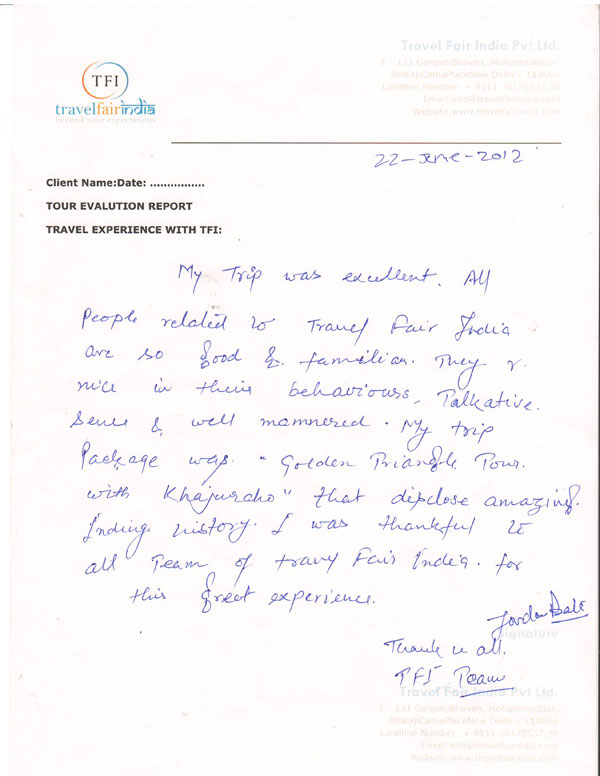 Travel Fair India Pvt Ltd.
E - 131 GanpatiBhavan, Mohammadpur,
BhikajiCamaPlaceNew Delhi - 110066
Landline Number: + 9111 26178537,38
Email: info@travelfairindia.com
Website: www.travelfairindia.com
TFI
travelfairindia
beyond your expectations
22-June-2012
Client Name:Date: ................
TOUR EVALUTION REPORT
TRAVEL EXPERIENCE WITH TFI:
My Trip was excellent. All
People related to Travel Fair India
are so good & familiar. They r
nice in their behaviours, Talkative.
Sense & well mannered. My trip
Package was "Golden Triangle Tour
with Khajuraho" that disclose amazing.
Inding history. I was thankful to
all Team of travel Fair India. for
this great experience.
Jordan
Signature
Thank u all.
TFI Team
Travel Fair India Pvt Ltd.
E - 131 GanpatiBhavan, Mohammadpur,
BhikajiCamaPlaceNew Delhi - 110066
Landline Number: + 9111 26178537,38
Email: info@travelfairindia.com
Website: www.travelfairindia.com